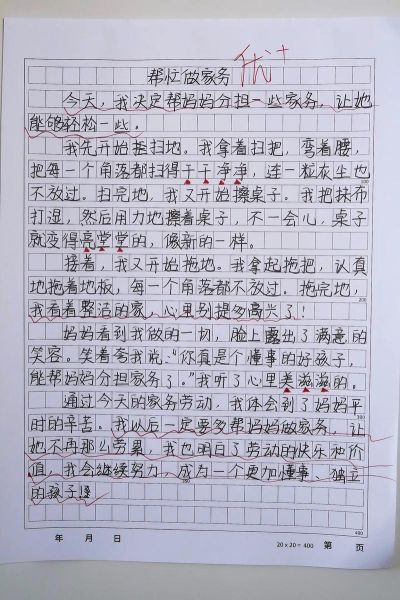 优+
帮忙做家务
今天,我决定帮妈妈分担一些家务,让她
能够轻松一些。
我先开始扫扫地。我拿着扫把,弯着腰,
把每一个角落都扫得干干净净,连一粒灰尘也
不放过。扫完地,我又开始擦桌子。我把抹布
打湿,然后用力地擦着桌子,不一会儿,桌子
就变得亮堂堂的,像新的一样。
接着,我又开始拖地。我拿起拖把,认真
地拖着地板,每一个角落都不放过。拖完地,
200
我看着整洁的家,心里别提多高兴了!
妈妈看到我做的一切,脸上露出了满意的
笑容。笑着夸我说:“你真是个懂事的好孩子,
能帮妈妈分担家务了。”我听了心里美滋滋的。
通过今天的家务劳动,我体会到了妈妈平
300
时的辛苦。我以后一定要多帮妈妈做家务,让
她不再那么劳累,我也明白了劳动的快乐和价
值,我会继续努力,成为一个更加懂事、独立
的孩子
400
年 月 日
20×20=400 第 页